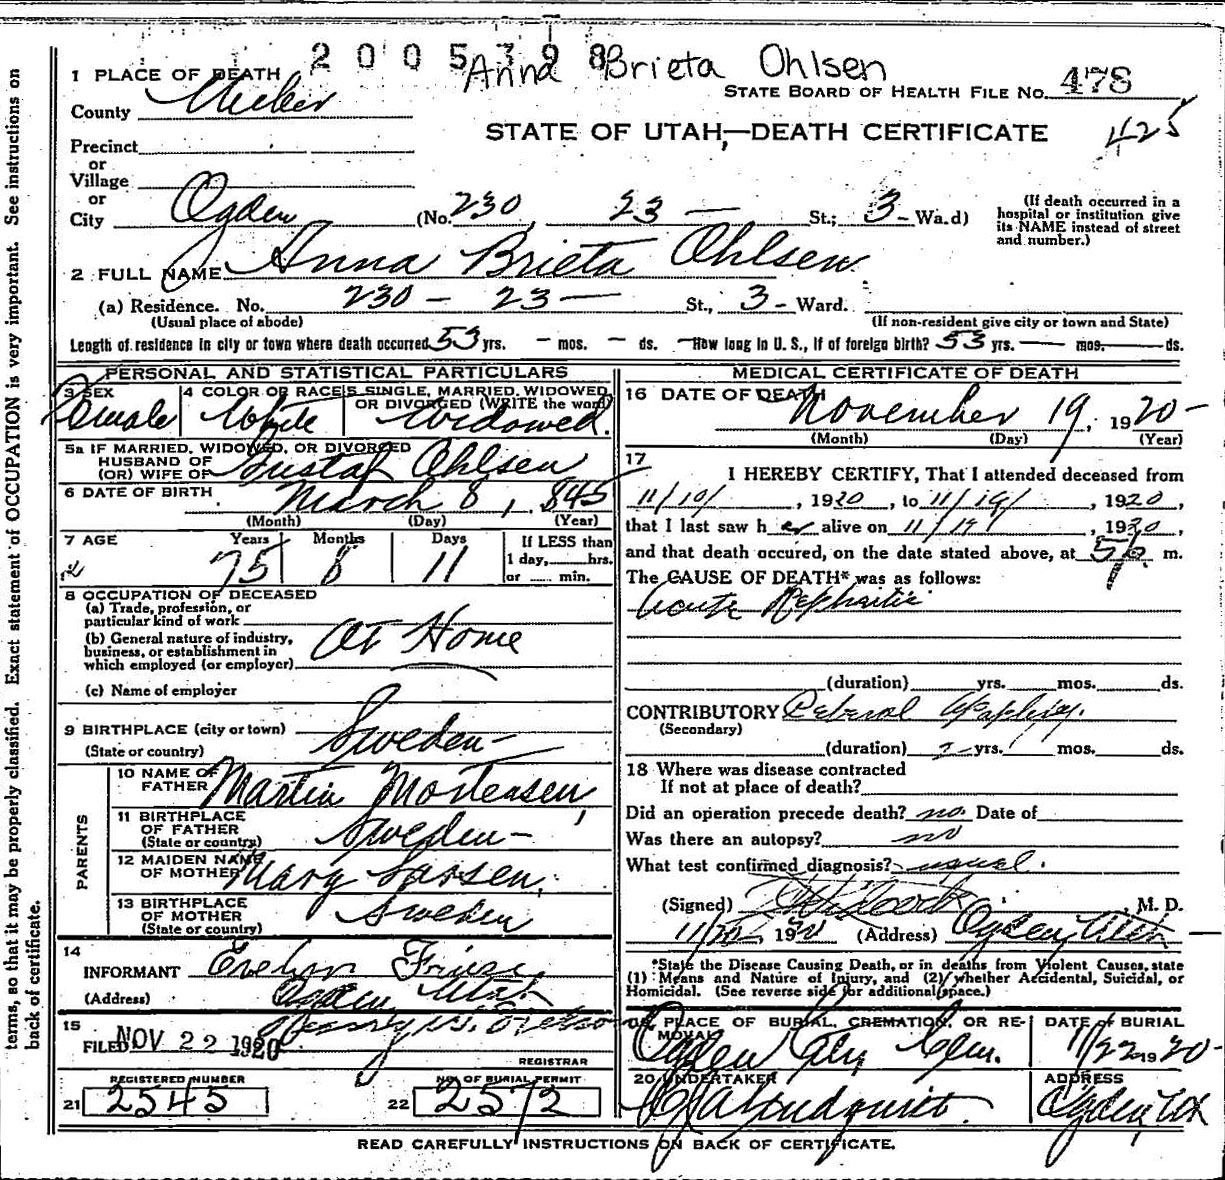 2005798 Anna Brieta Ohlsen
1 PLACE OF DEATH
STATE BOARD OF HEALTH FILE NO. 478
County Weber
STATE OF UTAH,—DEATH CERTIFICATE 425
Precinct
or
Village
or
City Ogden (No. 230, 23 — St.; 3 - Wa.d)
(If death occurred in a hospital or institution give its NAME instead of street and number.)
2 FULL NAME Anna Brieta Ohlsen
(a) Residence. No. 230 - 23 — St., 3 - Ward.
(Usual place of abode) (If non-resident give city or town and State)
Length of residence in city or town where death occurred 53 yrs. - mos. - ds. How long in U. S., if of foreign birth? 53 yrs. — mos. — ds.
PERSONAL AND STATISTICAL PARTICULARS
3 SEX Female
4 COLOR OR RACE White
5 SINGLE, MARRIED, WIDOWED, OR DIVORCED (WRITE the word) Widowed.
5a IF MARRIED, WIDOWED, OR DIVORCED
HUSBAND OF
(OR) WIFE OF Gustaf Ohlsen
6 DATE OF BIRTH March 8, 845
(Month) (Day) (Year)
7 AGE Years 75 Months 8 Days 11
If LESS than
1 day, hrs.
or min.
8 OCCUPATION OF DECEASED
(a) Trade, profession, or
particular kind of work
(b) General nature of industry,
business, or establishment in
which employed (or employer) At Home
(c) Name of employer
9 BIRTHPLACE (city or town)
(State or country) Sweden -
PARENTS
10 NAME OF
FATHER Martin Mortensen,
11 BIRTHPLACE
OF FATHER
(State or country) Sweden -
12 MAIDEN NAME
OF MOTHER Mary Larsen,
13 BIRTHPLACE
OF MOTHER
(State or country) Sweden
14
INFORMANT Evelyn
(Address) Ogden Utah
15
FILED NOV 22 1920 Henry W.
REGISTRAR
21 REGISTERED NUMBER 2545
22 NO. OF BURIAL PERMIT 2572
MEDICAL CERTIFICATE OF DEATH
16 DATE OF DEATH November 19, 1920 -
(Month) (Day) (Year)
17
I HEREBY CERTIFY, That I attended deceased from
11/10/, 1920, to 11/19/, 1920,
that I last saw her alive on 11/19, 1920,
and that death occured, on the date stated above, at 5 p. m.
The CAUSE OF DEATH* was as follows:
Acute Nephritis
(duration) yrs. mos. ds.
CONTRIBUTORY
(Secondary)
(duration) 2 yrs. mos. ds.
18 Where was disease contracted
If not at place of death?
Did an operation precede death? no. Date of
Was there an autopsy? no
What test confirmed diagnosis? usual.
(Signed) , M. D.
11/20, 1920 (Address) Ogden Utah
*State the Disease Causing Death, or in deaths from Violent Causes, state
(1) Means and Nature of Injury, and (2) whether Accidental, Suicidal, or
Homicidal. (See reverse side for additional space.)
PLACE OF BURIAL, CREMATION, OR REMOVAL Ogden City Cem.
DATE of BURIAL 11/22 1920 -
20 UNDERTAKER Lindquist.
ADDRESS Ogden, Ut
READ CAREFULLY INSTRUCTIONS ON BACK OF CERTIFICATE.
terms, so that it may be properly classified. Exact statement of OCCUPATION is very important. See instructions on
back of certificate.